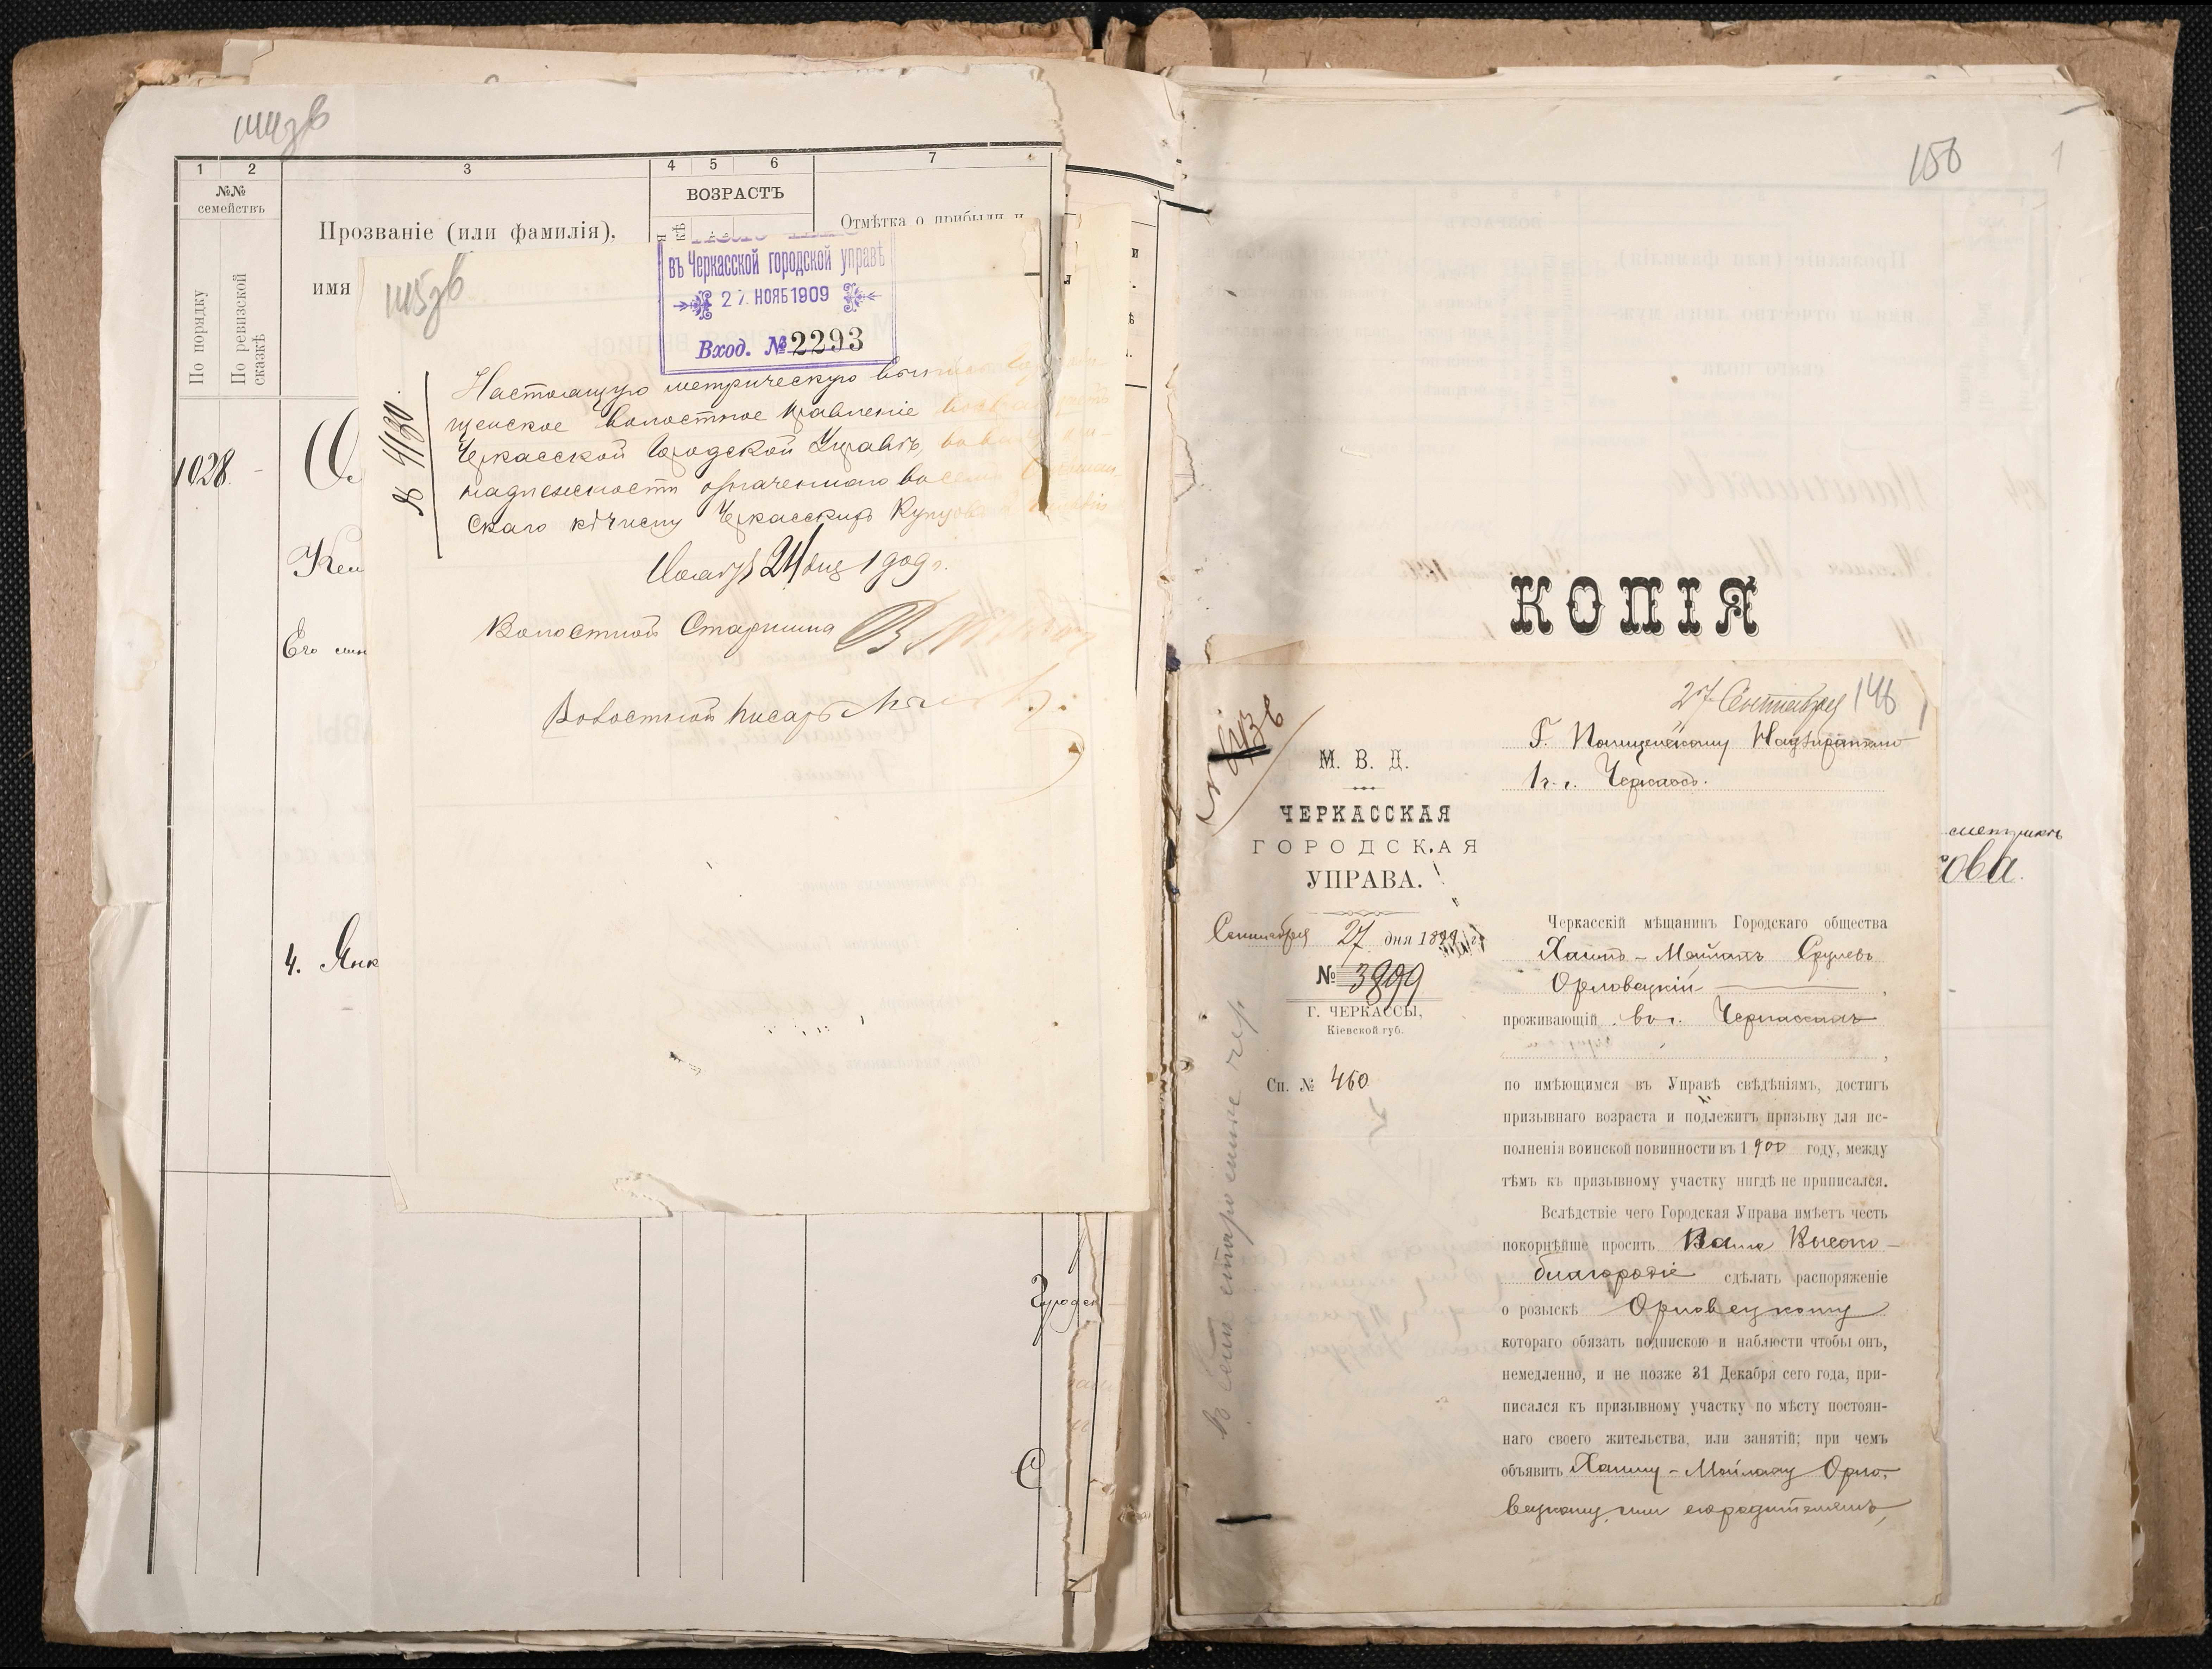 144зв
1 2 3 4 5 6 7
№№
семействъ
По порядку
По ревизской
сказкѣ
Прозваніе (или фамилія),
имя
ВОЗРАСТЪ
Отмѣтка о прибыли и
1028
Его
4. Янк
145зв
въ Черкасской городской управѣ
27 НОЯБ 1909
Вход. № 2293
№ 4130.
Настоящую метрическую
щенское Волостное Правленіе
Черкасской Городской Управѣ,
надлежности означеннаго
скаго къ числу Черкасскихъ Купцовъ
24 дня 1909 г.
Волостной Старшина
Волостной Писарь
150
1
КОПІЯ
ова.
27 Сентября 148
Г. Полицейскому Надзирателю
1 ч. г. Черкассъ.
М. В. Д.
ЧЕРКАССКАЯ
ГОРОДСКАЯ
УПРАВА.
Сентября 27 дня 1899 г.
№ 3899
Г. ЧЕРКАССЫ,
Кіевской губ.
Сп. № 460
Черкасскій мѣщанинъ Городскаго общества
Хаимъ-Мойлахъ Срулевъ
Орловецкій,
проживающій въ г. Черкассахъ
по имѣющимся въ Управѣ свѣдѣніямъ, достигъ
призывнаго возраста и подлежитъ призыву для ис-
полненія воинской повинности въ 1900 году, между
тѣмъ къ призывному участку нигдѣ не приписался.
Вслѣдствіе чего Городская Управа имѣетъ честь
покорнѣйше просить Ваше Высоко-
благородіе сдѣлать распоряженіе
о розыскѣ Орловецкому
котораго обязать подпискою и наблюсти чтобы онъ,
немедленно, и не позже 31 Декабря сего года, при-
писался къ призывному участку по мѣсту постоян-
наго своего жительства, или занятій; при чемъ
объявить Хаиму-Мойлаху Орло-
вецкому, или его родителямъ,